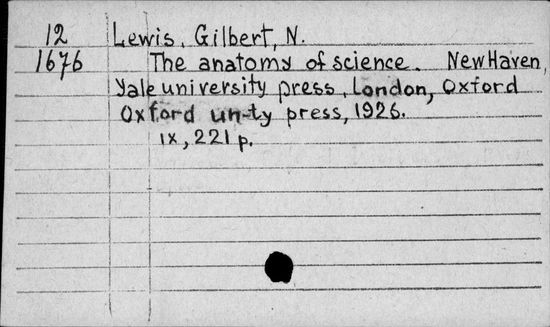 12 Lewis, Gilbert, N.
1676 The anatomy of science. New Haven,
Yale university press, London, Oxford
Oxford un-ty press, 1926.
IX, 221 p.